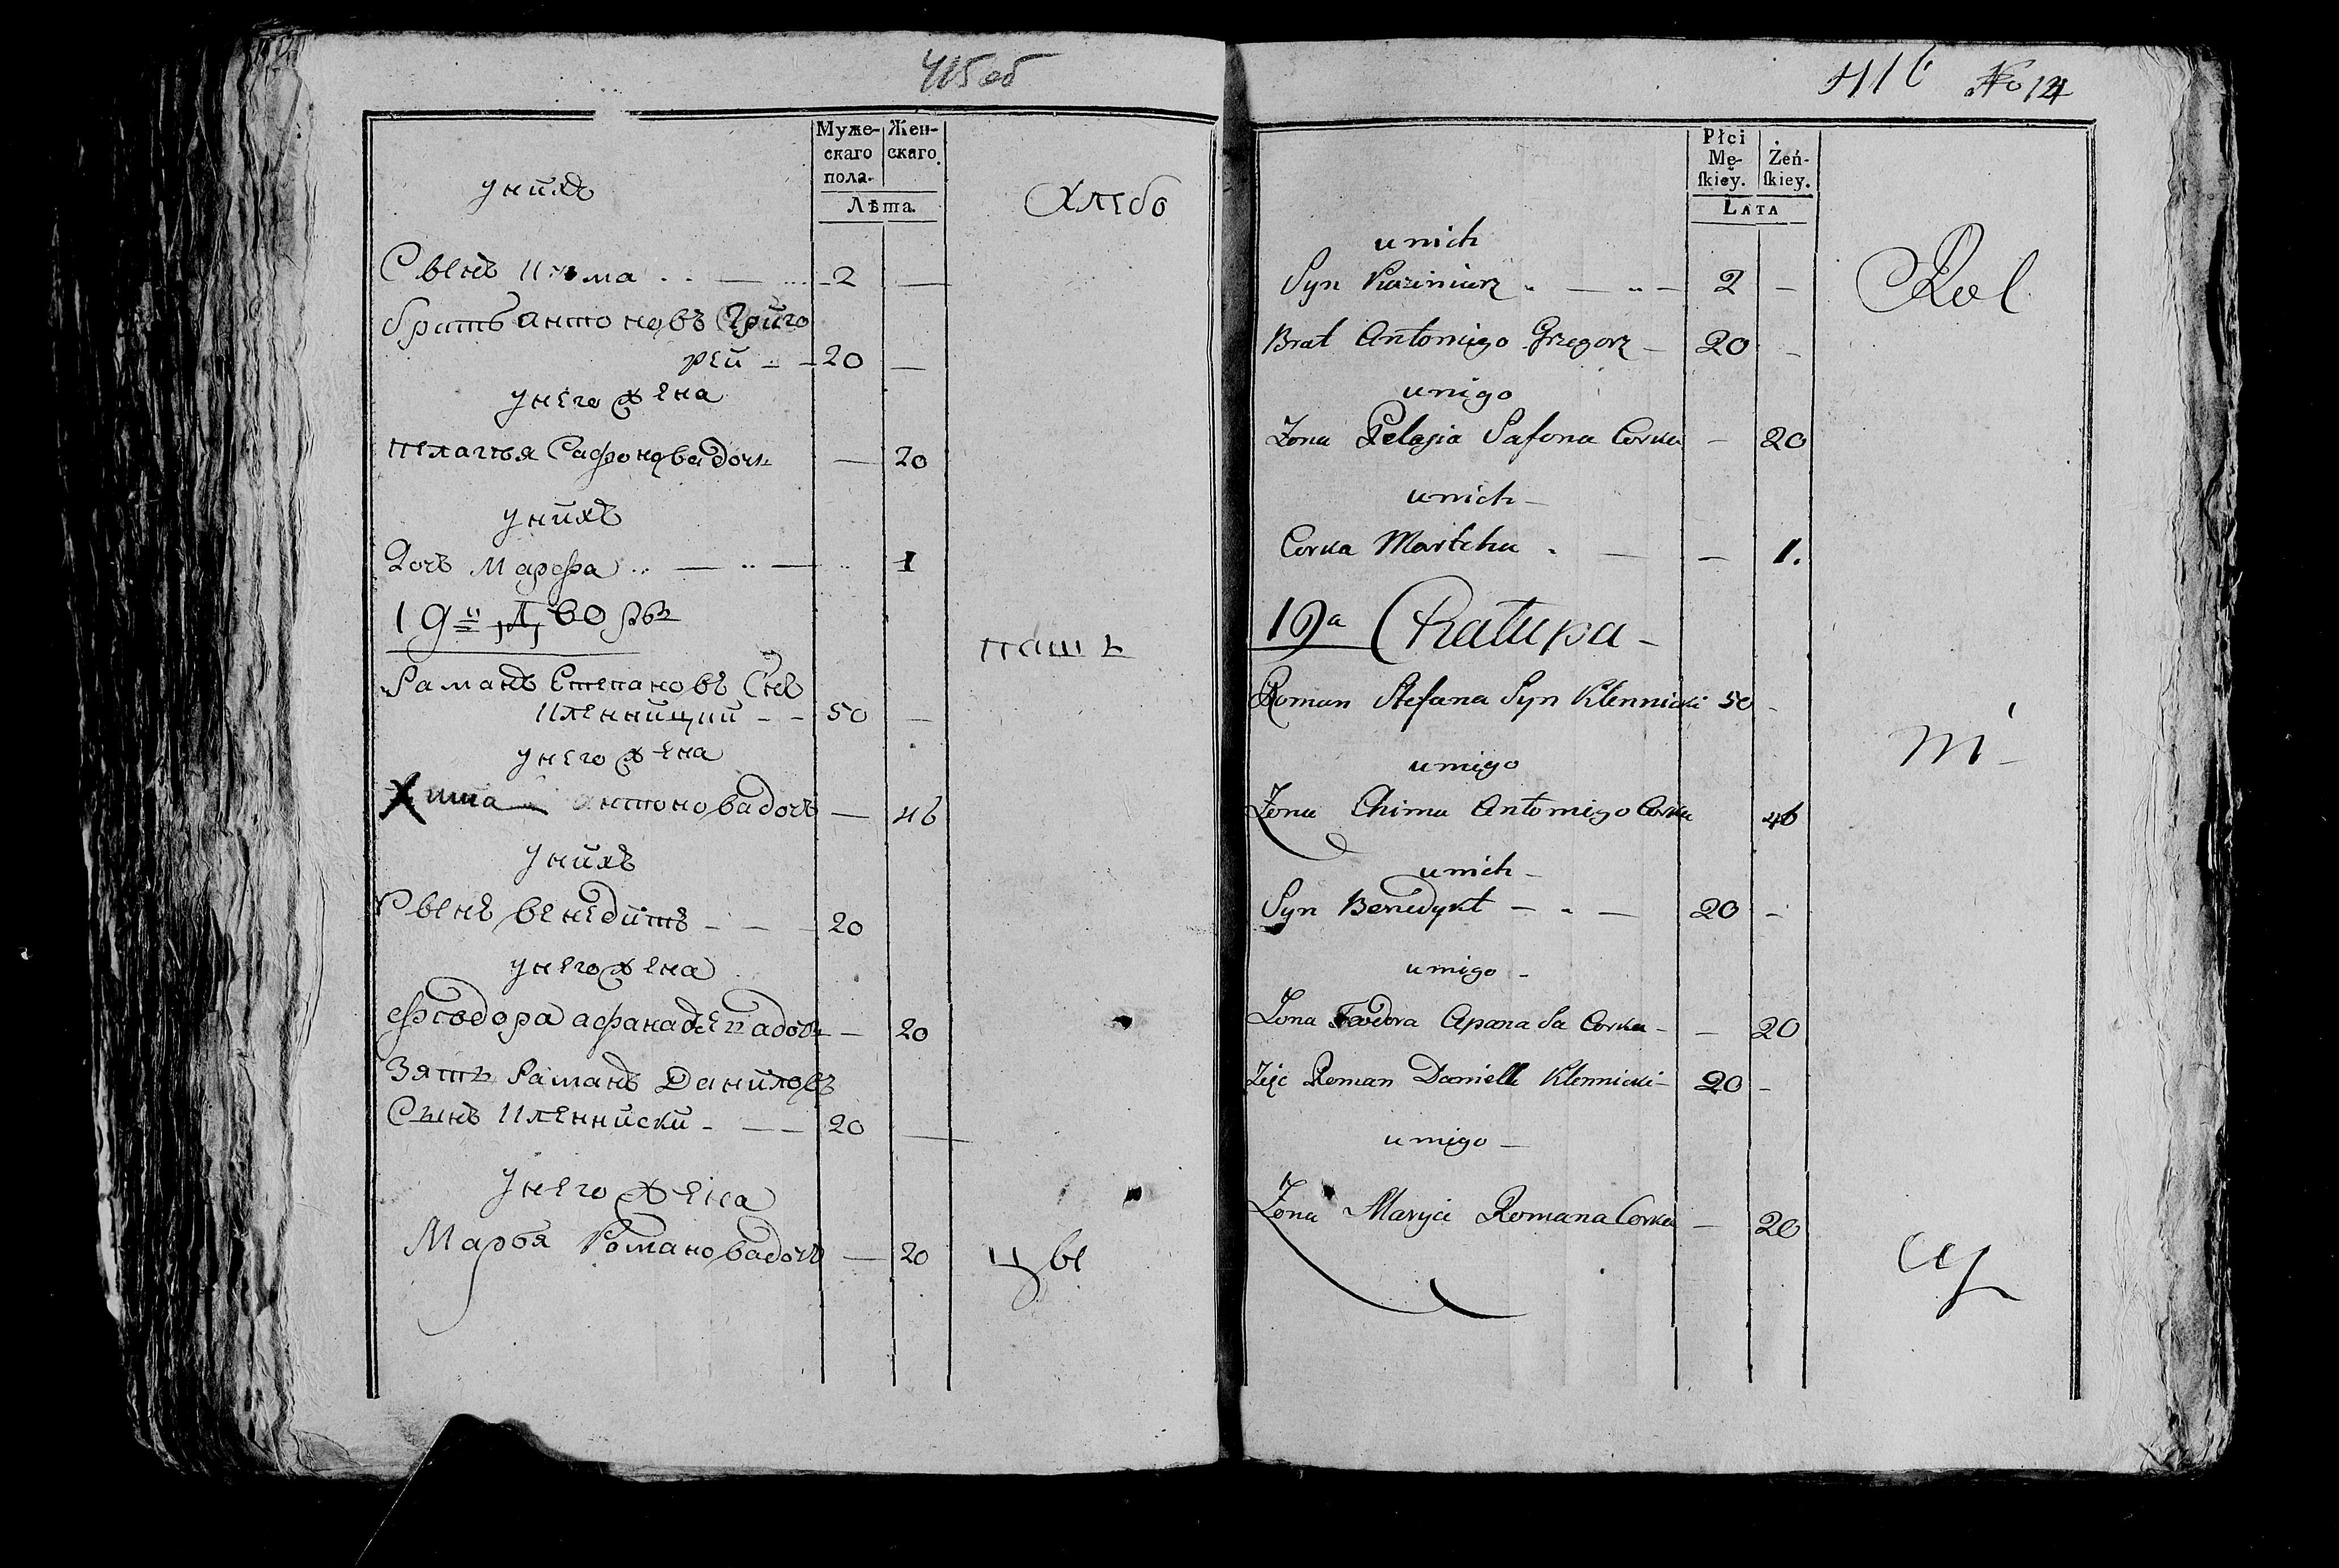 415 об
Муже-
скаго
пола.
Жен-
скаго.
Лѣта.
унихъ
хлебо
Сынъ
2 —
братъ антоновъ Григо
рей — 20 —
унего жена
пелагья Сафонова дочь — 20
унихъ
Дочь Марфа — 1
19й Дворъ
пашъ
Раманъ Степановъ Снъ
Кленницкий — 50 —
унего жена
Хима антонова дочъ — 46
унихъ
Сынъ венедитъ — 20
унего жена
Феодора афана дочъ — 20
Зять Раманъ Даниловъ
Сынъ Кленниски — 20 —
унего жена
Марья Романова дочъ — 20
цы
416 No 14
Płci
Mę-
ſkiey.
Żeń-
ſkiey.
LATA
unich
Syn Kazimierz — 2 —
Rol
Brat Antoniego Grzegorz — 20 —
unigo
Zona Pelagia Safona Corka — 20
unich —
Corka Martcha — 1.
19a Chałupa —
Roman Stefana Syn Klennicki 50 —
ni —
unigo
Zona Chima Antoniego Corka 46
unich —
Syn Benedykt — 20 —
unigo —
Zona Teodora Apana Sa Corka — 20
Zięc Roman Danielli Klennicki — 20 —
unigo —
Zona Maryia Romana Corka — 20
cy